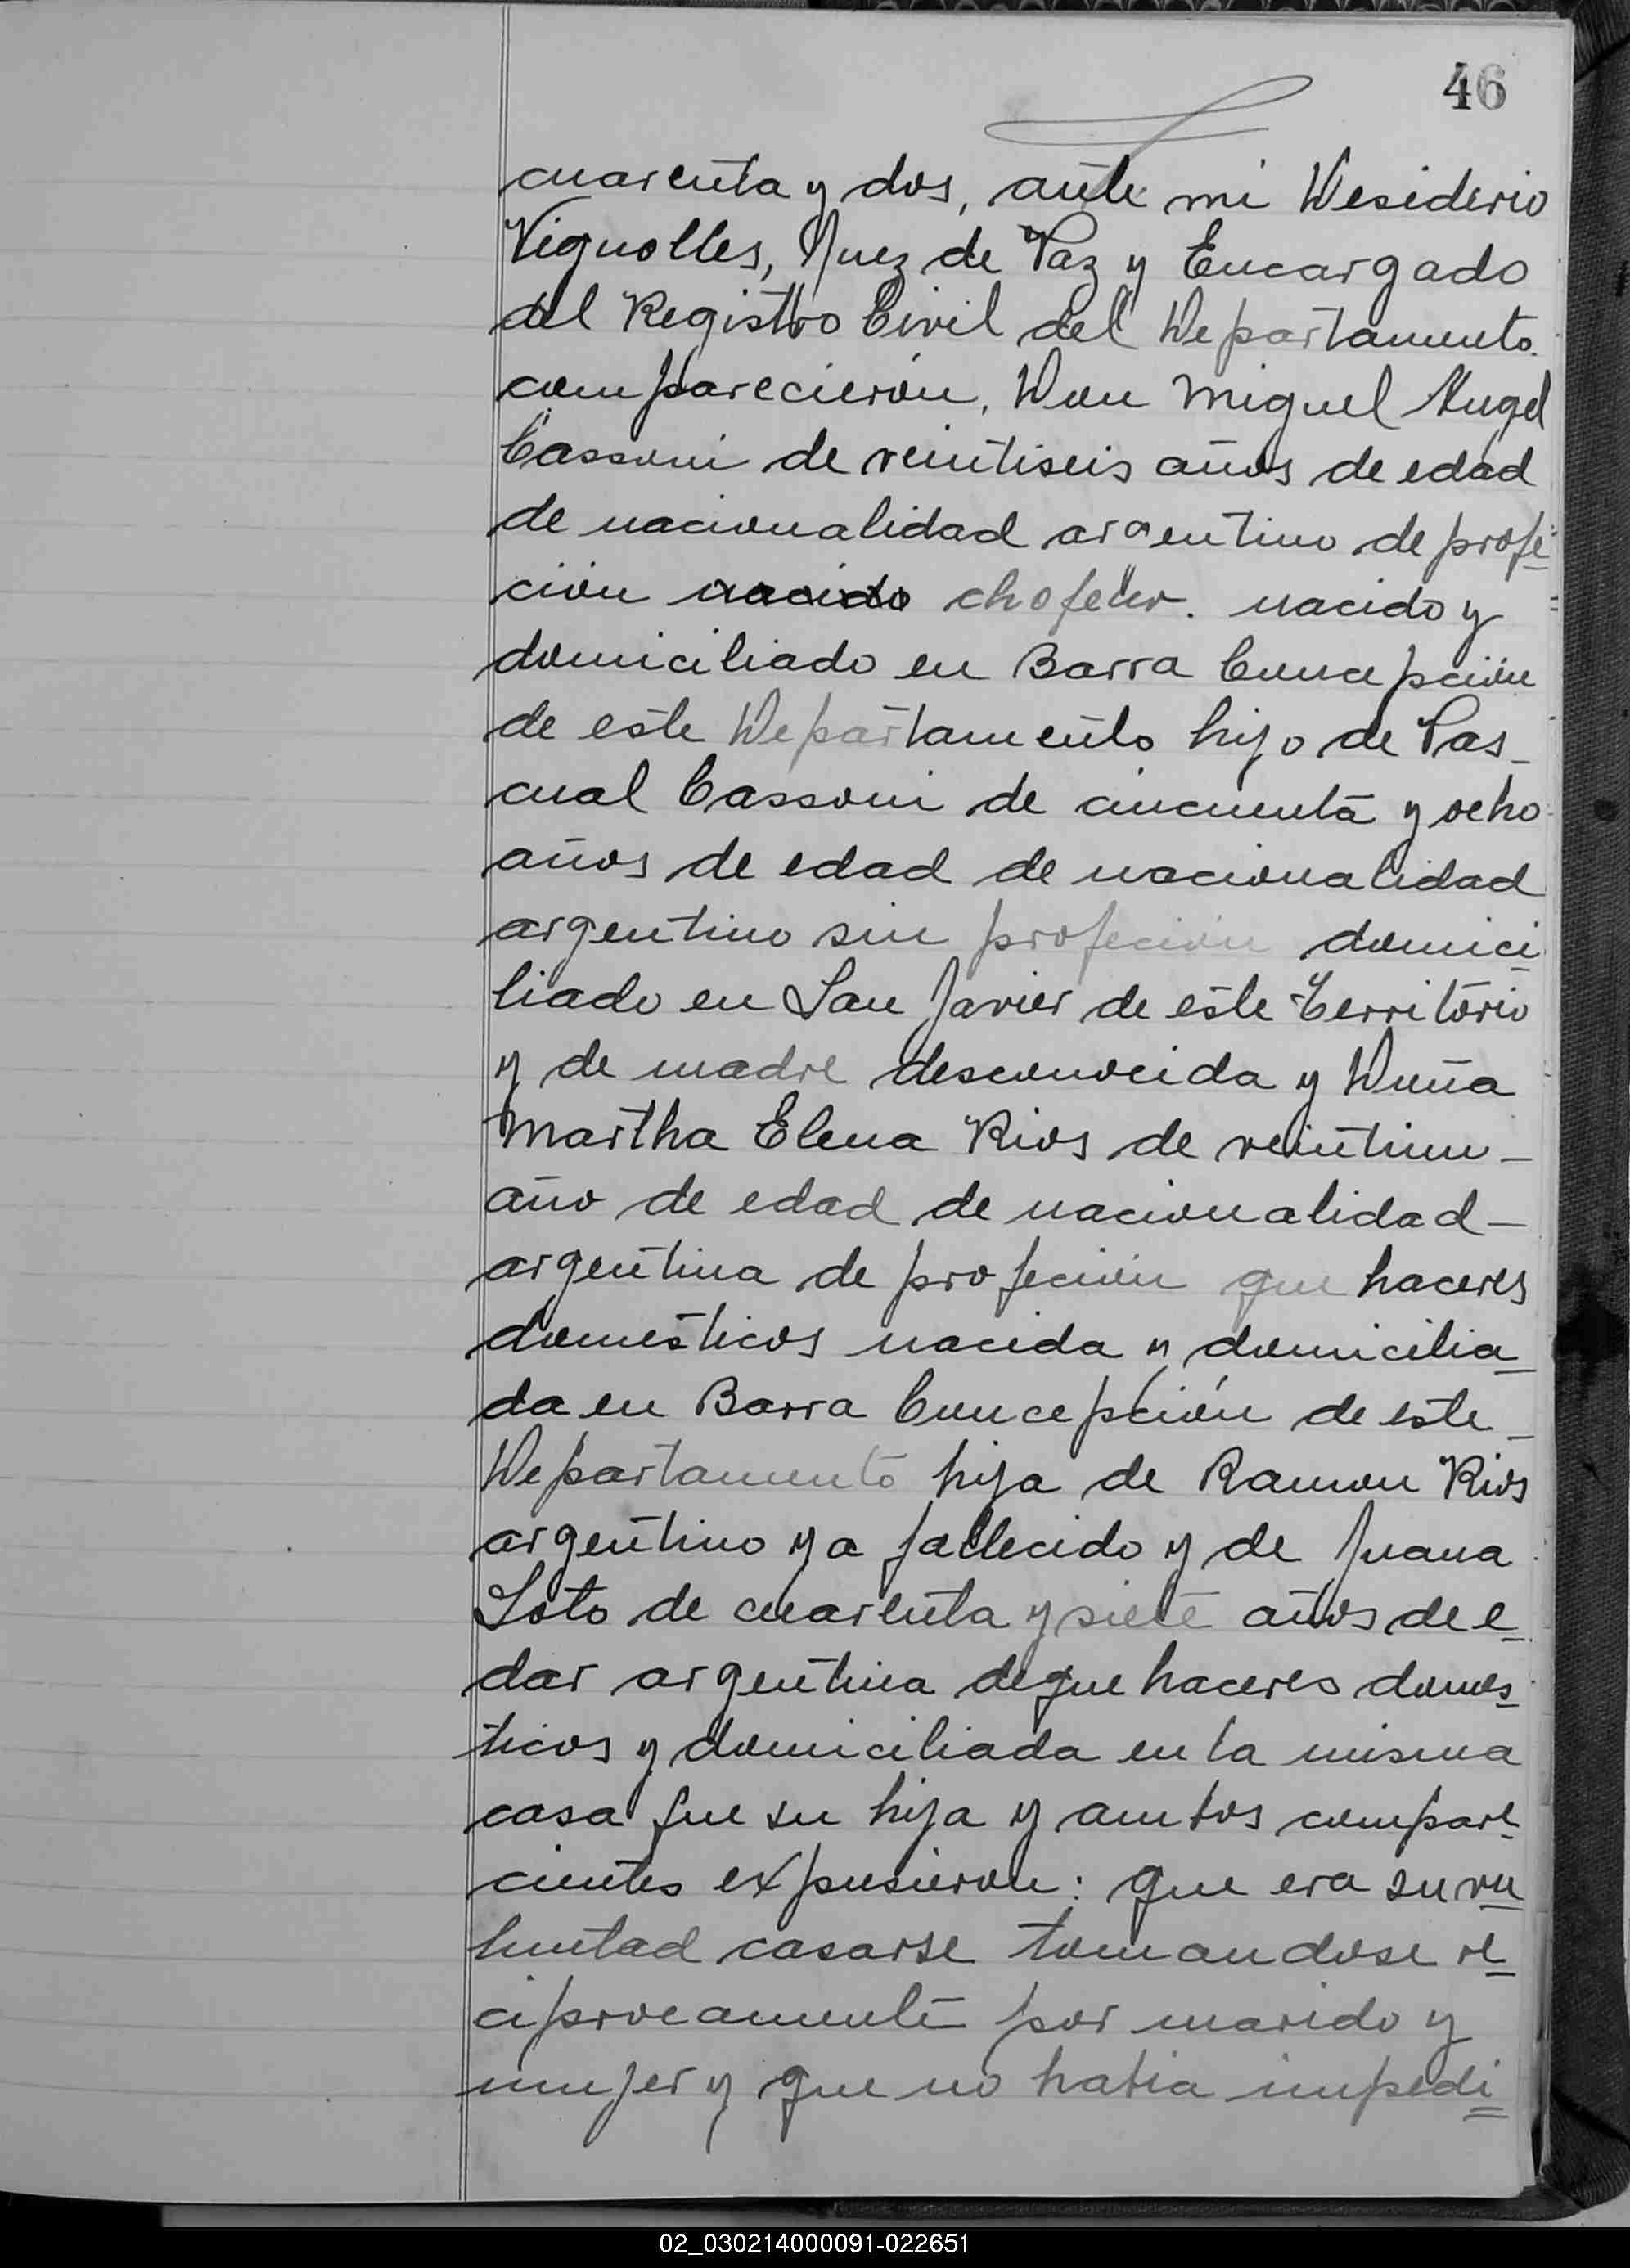 46
cuarenta y dos, ante mi Desiderio
Vignolles, Juez de Paz y Encargado
del Registro Civil del Departamento
comparecieron, Don Miguel Angel
Cassoni de veintiseis años de edad
de nacionalidad argentino de profe-
ción nacido chofeur. nacido y =
domiciliado en Barra Concepción
de este Departamento hijo de Pas-
cual Cassoni de cincuenta y ocho
años de edad de nacionalidad
argentino sin profeción domici-
liado en San Javier de este Territorio
y de madre desconocida y Doña
Martha Elena Rios de veintiun-
año de edad de nacionalidad-
argentina de profeción que haceres
domésticos nacida y domicilia-
da en Barra Concepción de este-
Departamento hija de Ramon Rios
argentino ya fallecido y de Juana
Soto de cuarenta y siete años de e-
dar argentina de que haceres domes-
ticos y domiciliada en la misma
casa que su hija y ambos compare-
cientes expusieron: que era su vo-
luntad casarse tomandose re-
ciprocamente por marido y
mujer y que no habia impedi=
02_030214000091-022651